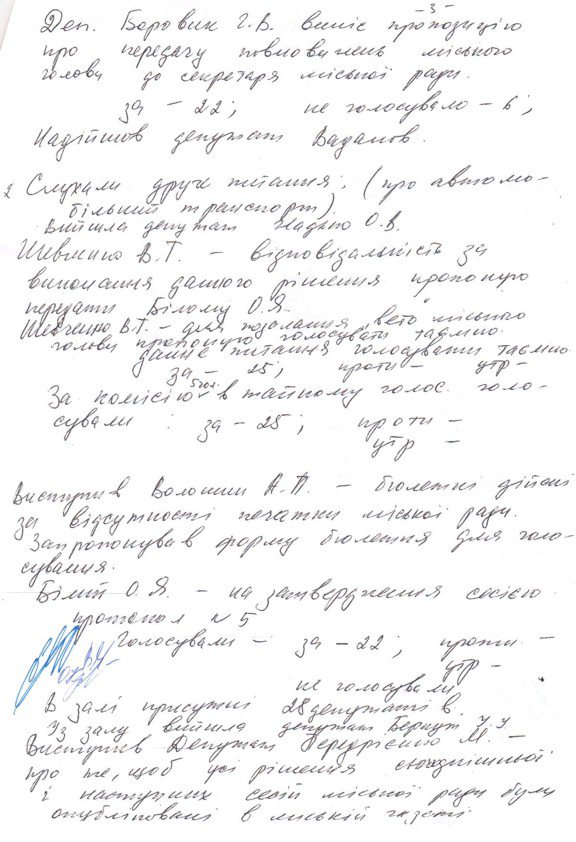 -3-
Деп. Боровик Г.В. виніс пропозицію
про передачу повноважень міського
голови до секретаря міської ради.
за – 22; не голосувало – 6;
Надійшов депутат Ваданов.
2 Слухали друге питання, (про автомо-
більний транспорт)
Вийшла депутат О.В.
Шевченко В.Т. – відповідальність за
виконання даного рішення пропоную
передати Білому О.Я.
Шевченко В.Т. – для подолання "вето" міського
голови пропоную голосувати таємно.
дане питання голосувати таємно
за – 25; проти – утр –
За комісію в тайному голос. голо-
сували : за – 25; проти –
утр –
Виступив Волошин А.П. – бюлетні дійсні
за відсутності печатки міської ради.
Запропонував форму бюлетня для голо-
сування.
Білий О.Я. – на затвердження сесією
протокол № 5
Голосували – за – 22, проти –
утр –
не голосували
В залі присутні 28 депутатів.
Із залу вийшла депутат Беркут
Виступив Депутат М. –
про те, щоб усі рішення сьогоднішньої
і наступних сесій міської ради були
опубліковані в міській газеті